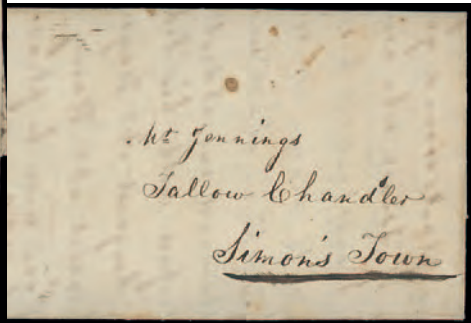 Mr Jennings
Tallow Chandler
Simon's Town